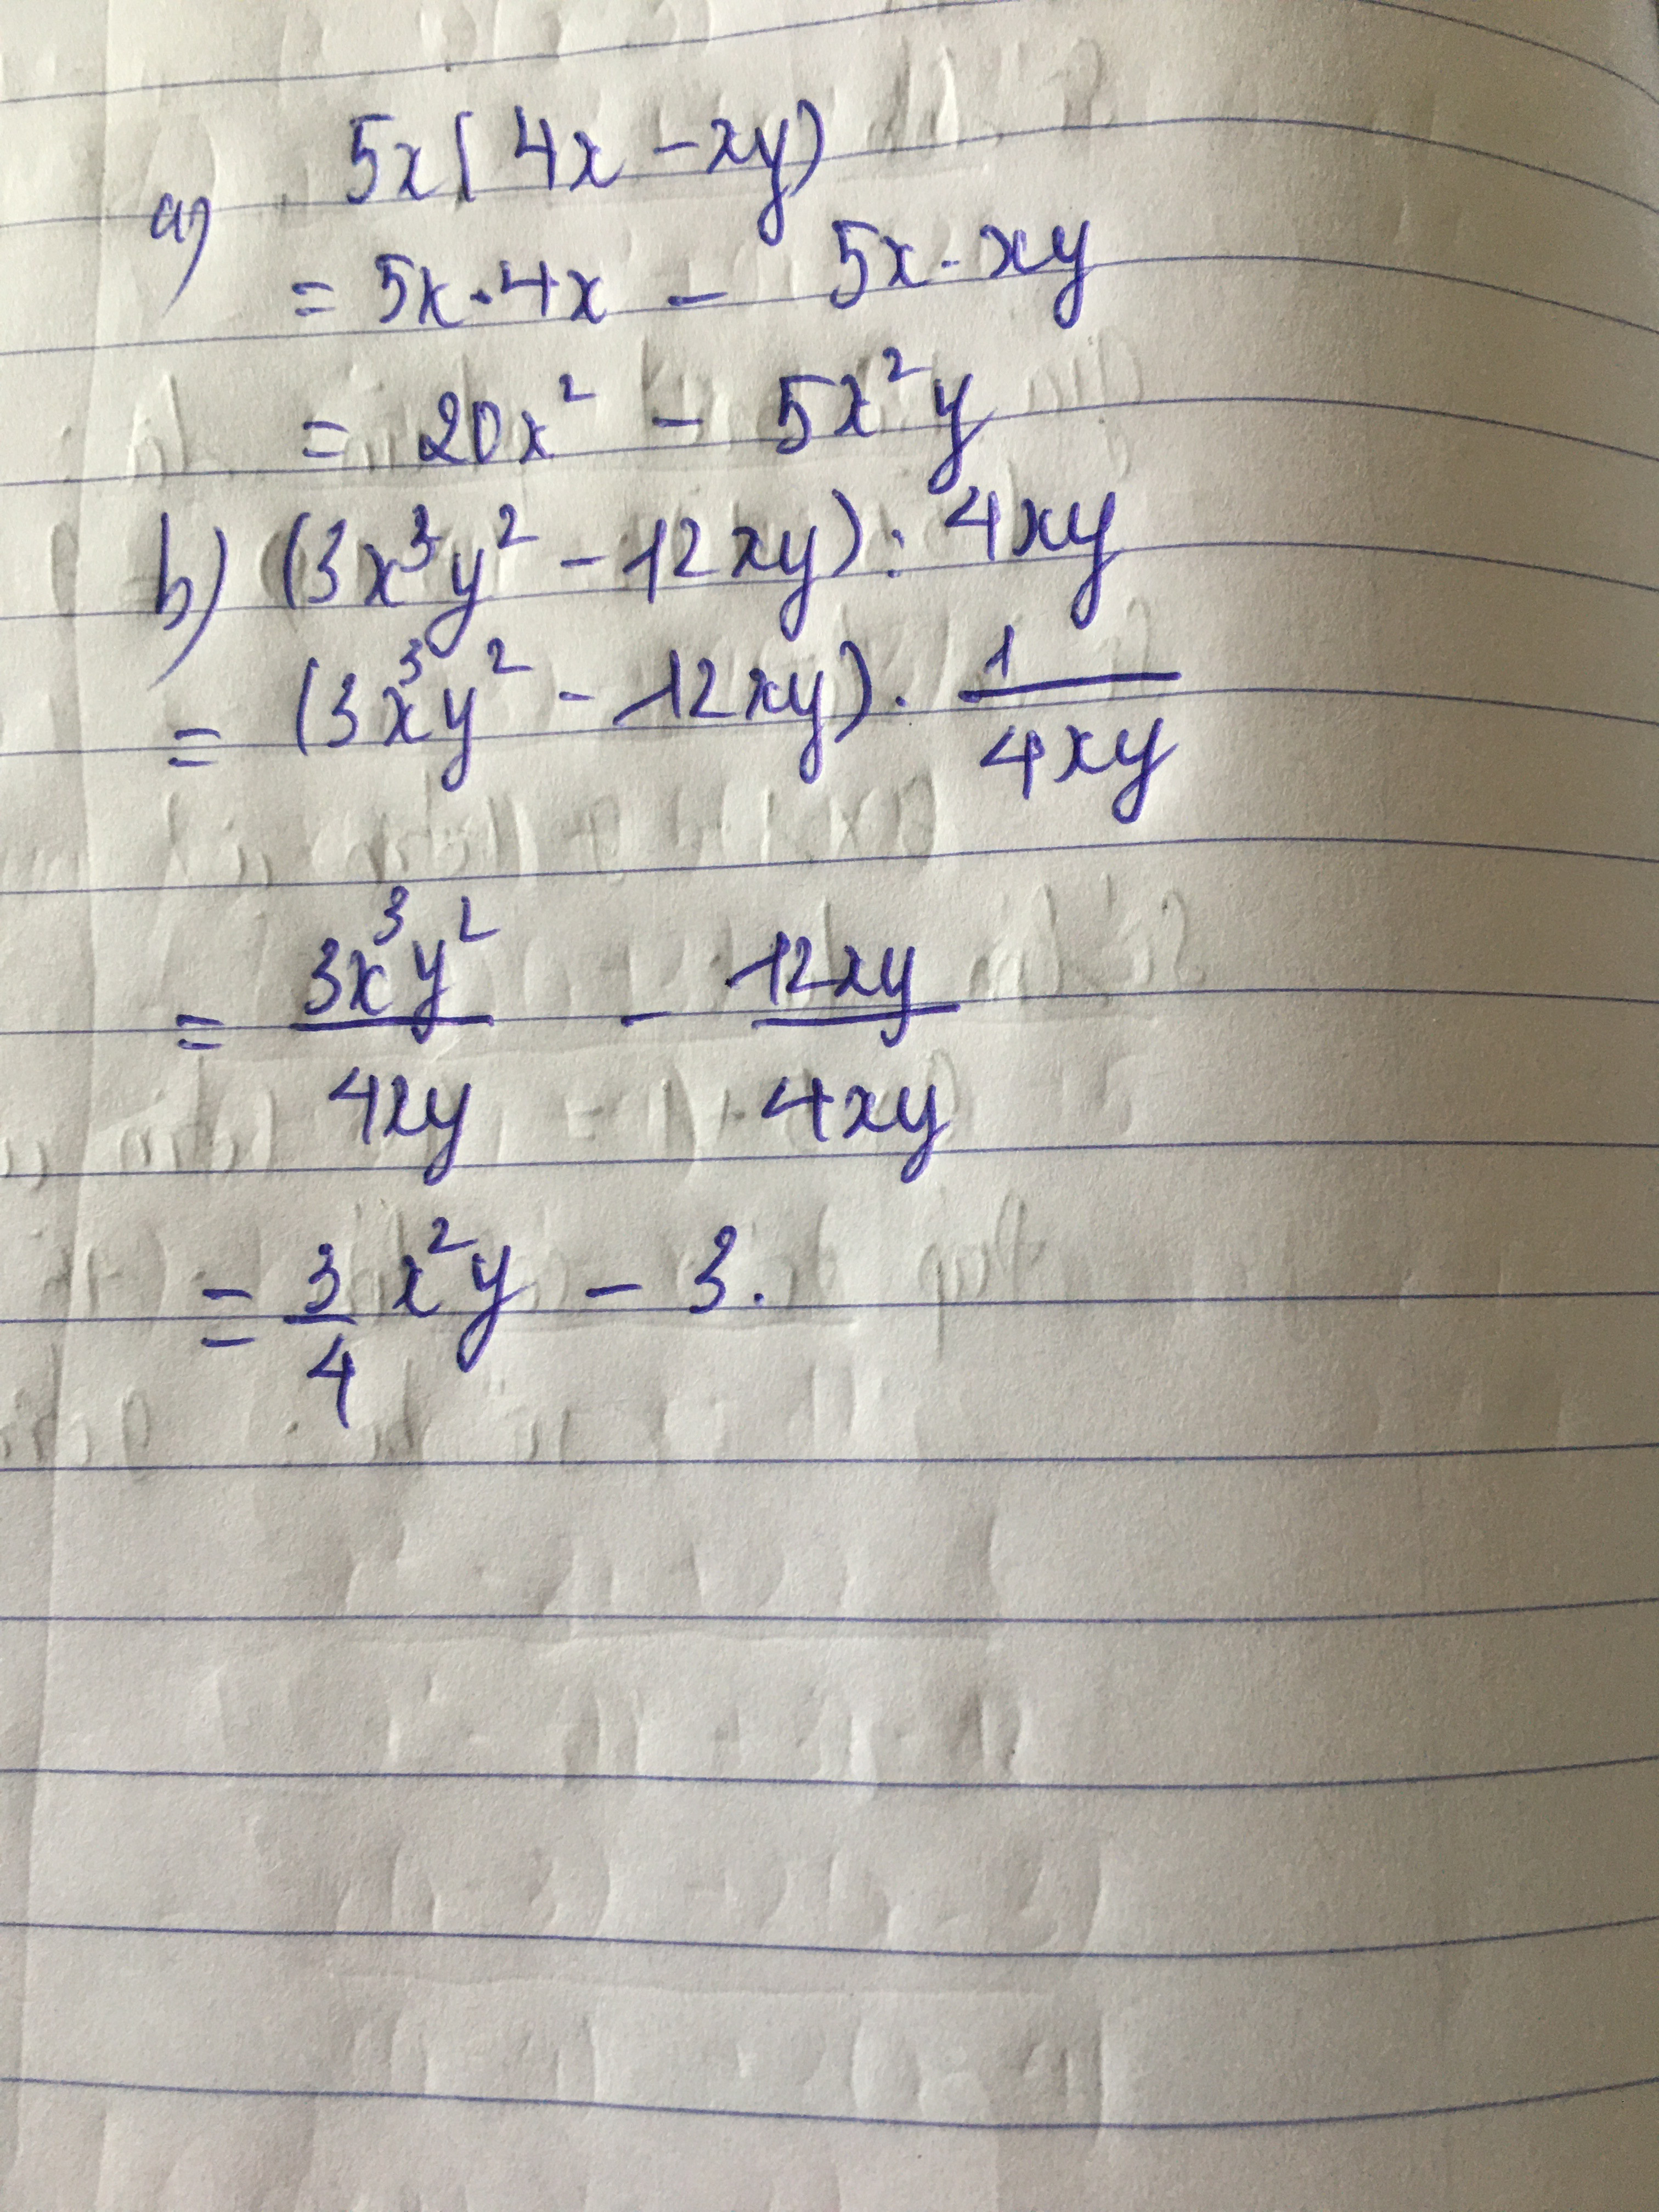 a) 5x(4x - xy)
= 5x.4x - 5x.xy
= 20x² - 5x²y
b) (3x³y² - 12xy) : 4xy
= (3x³y² - 12xy) . 1/4xy
= 3x³y²/4xy - 12xy/4xy
= 3/4 x²y - 3.